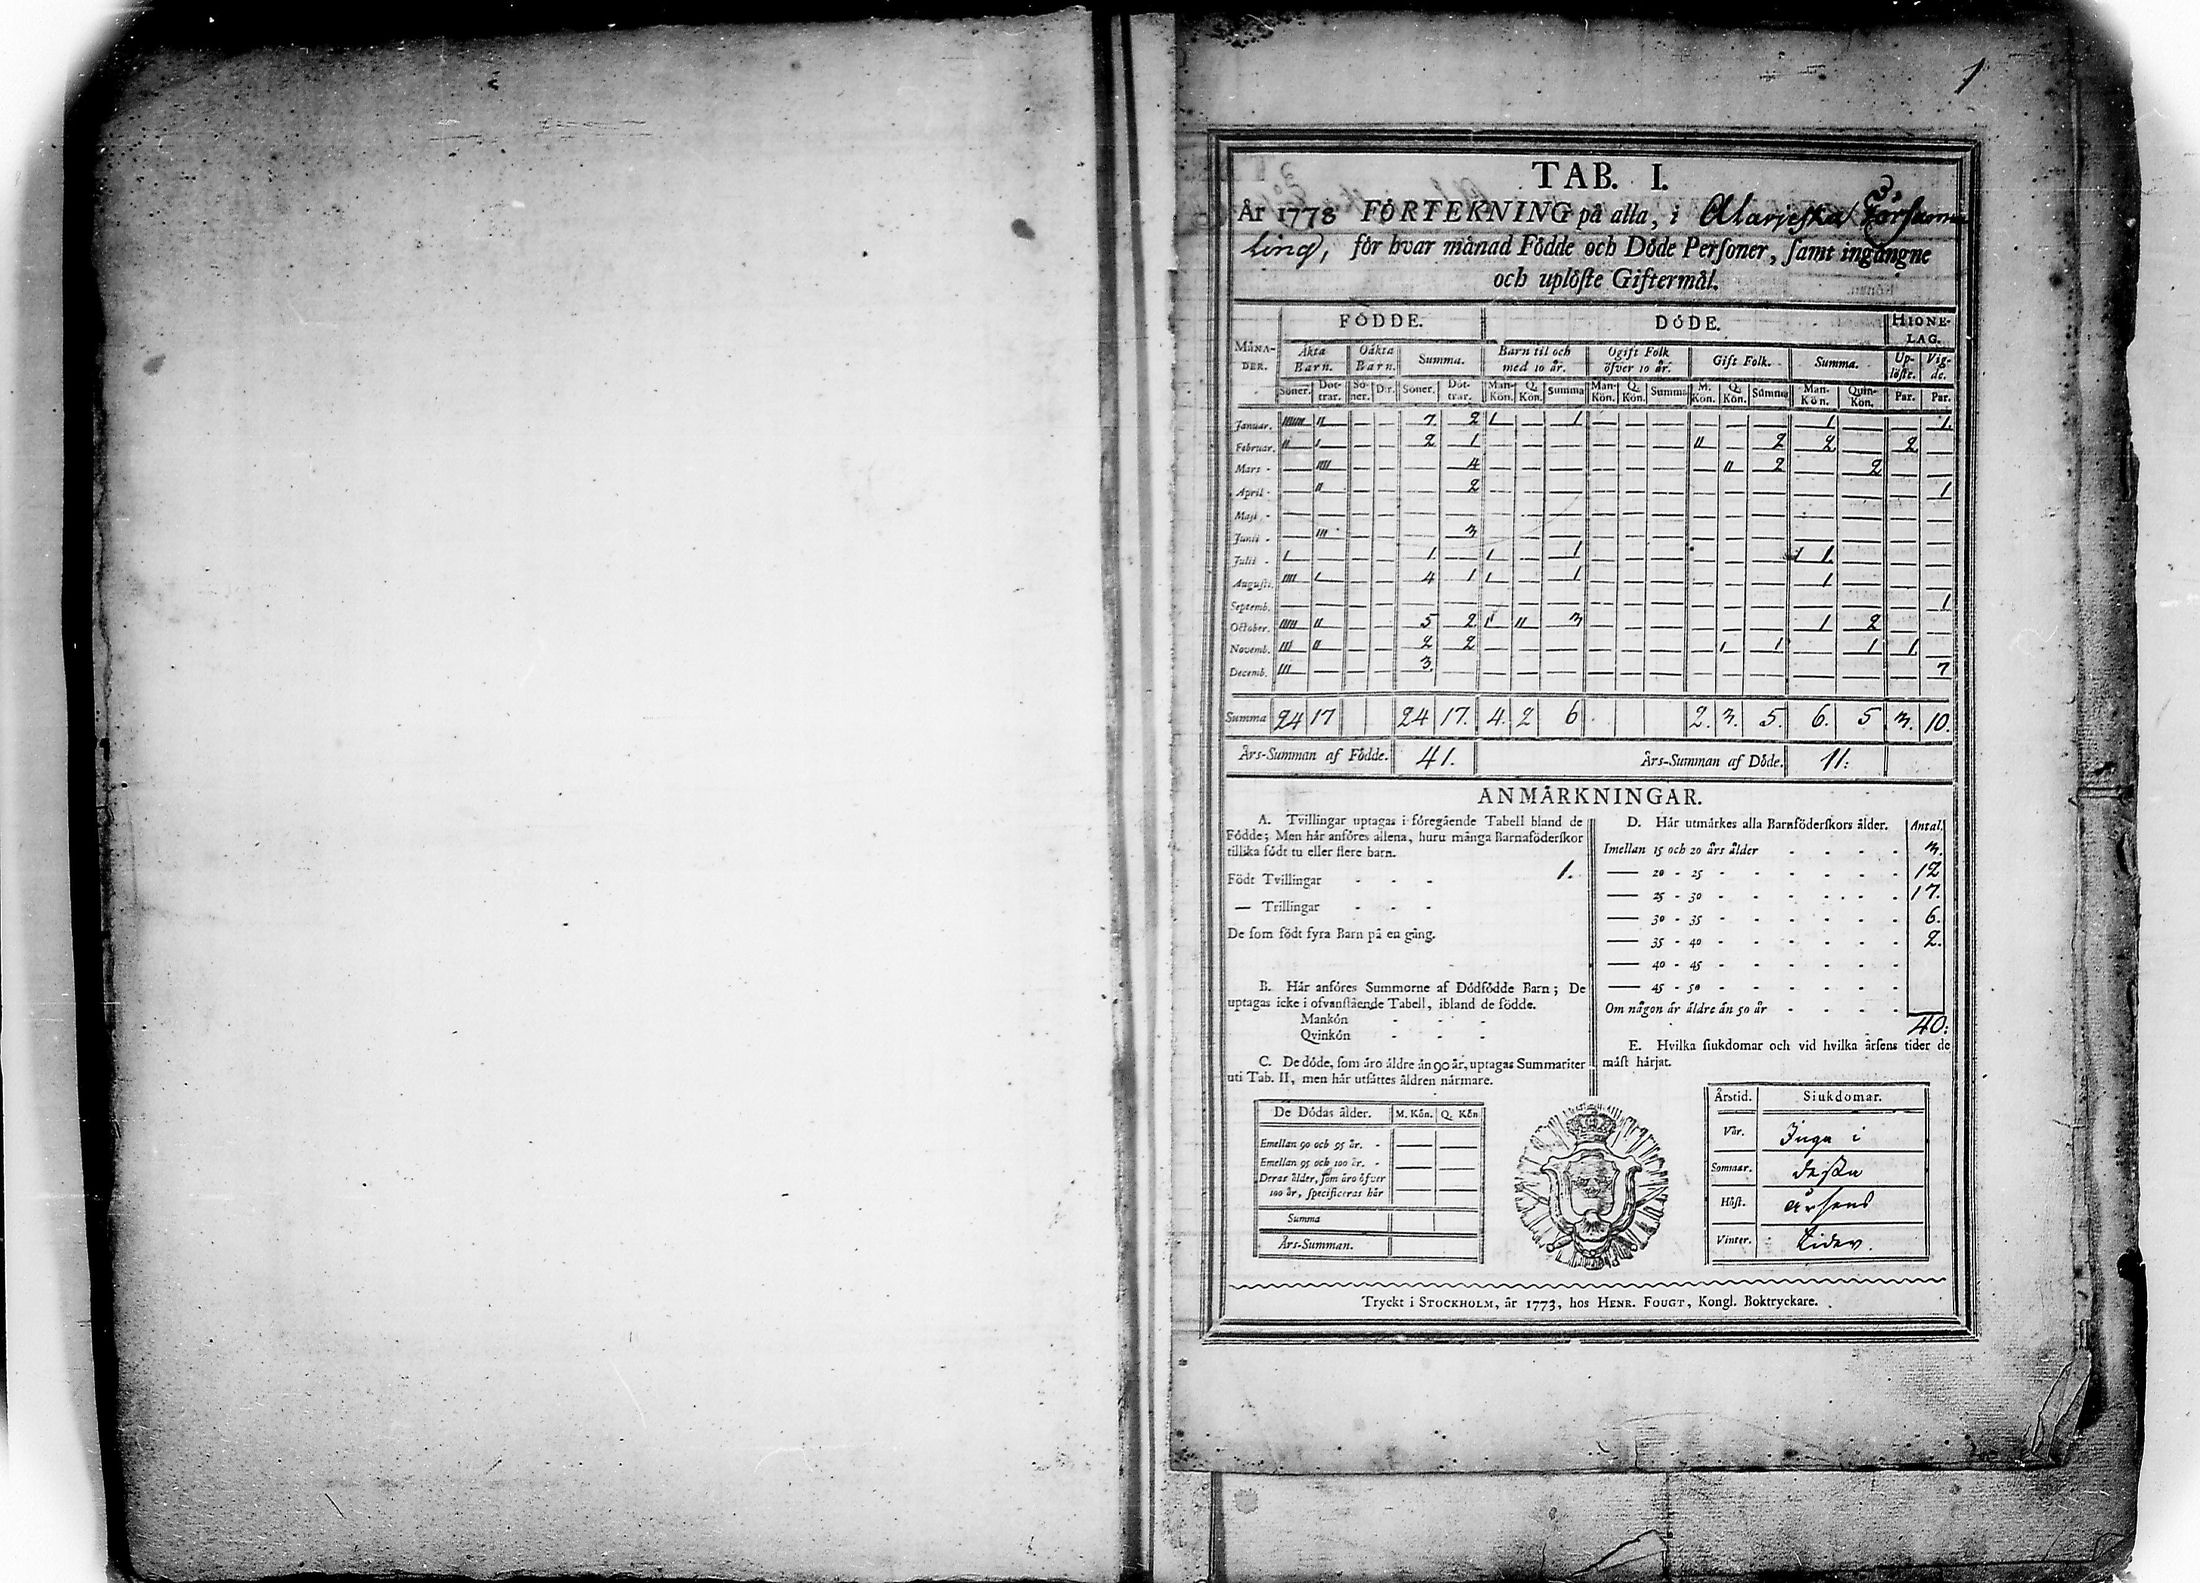 1
TAB. I.
År 1778 FÖRTEKNING på alla, i Alavieska Försam
ling, för hvar månad Födde och Döde Personer, samt ingångne
och uplöste Giftermål.
MÅNA-DER. | FÖDDE. | DÖDE. | HIONE-LAG.
Äkta Barn. | Oäkta Barn. | Summa. | Barn til och med 10 år. | Ogift Folk öfver 10 år. | Gift Folk. | Summa. | Up-löste. | Vig-de.
Söner. | Döt-trar. | Sö-ner. | D:r. | Söner. | Döt-trar. | Man-Kön. | Q. Kön. | Summa | Man-Kön. | Q. Kön. | Summa | M. Kön. | Q. Kön. | Summa | Man-Kön. | Quin-Kön. | Par. | Par.
Januar. | IIIIIII | II | — | — | 7. | 2 | 1 | — | 1 | — | — | — | — | — | — | 1 | — | — | 1.
Februar. | II | I | — | — | 2 | 1 | — | — | — | — | — | — | II | — | 2 | 2 | — | 2 | —
Mars - | — | IIII | — | — | — | 4 | — | — | — | — | — | — | — | II | 2 | — | 2 | — | —
April - | — | II | — | — | — | 2 | — | — | — | — | — | — | — | — | — | — | — | — | 1
Maji - | — | — | — | — | — | — | — | — | — | — | — | — | — | — | — | — | — | — | —
Junii - | — | III | — | — | — | 3 | — | — | — | — | — | — | — | — | — | — | — | — | —
Julii - | 1 | — | — | — | 1. | — | 1 | — | 1 | — | — | — | — | — | — | 1. | — | — | —
Augusti. | IIII | I | — | — | 4 | 1 | 1 | — | 1 | — | — | — | — | — | — | 1 | — | — | —
Septemb. | — | — | — | — | — | — | — | — | — | — | — | — | — | — | — | — | — | — | 1
October. | IIIII | II | — | — | 5 | 2 | 1 | II | 3 | — | — | — | — | — | — | 1 | 2 | — | —
Novemb. | II | II | — | — | 2 | 2 | — | — | — | — | — | — | — | 1 | 1 | — | 1 | 1 | —
Decemb. | III | — | — | — | 3. | — | — | — | — | — | — | — | — | — | — | — | — | — | 7
Summa | 24 | 17 | | | 24 | 17. | 4. | 2 | 6 | | | | 2. | 3. | 5. | 6. | 5 | 3. | 10.
Års-Summan af Födde. 41. Års-Summan af Döde. 11:
ANMÄRKNINGAR.
A. Tvillingar uptagas i föregående Tabell bland de
Födde; Men här anföres allena, huru många Barnaföderskor
tillika födt tu eller flere barn.
Födt Tvillingar - - - 1.
— Trillingar - - -
De som födt fyra Barn på en gång.
B. Här anföres Summorne af Dödfödde Barn; De
uptagas icke i ofvanstående Tabell, ibland de födde.
Mankön - - -
Qvinkön - - -
C. De döde, som äro äldre än 90 år, uptagas Summariter
uti Tab. II, men här utsättes åldren närmare.
De Dödas ålder. | M. Kön. | Q. Kön
Emellan 90 och 95 år. - | — | —
Emellan 95 och 100 år. - | — | —
Deras ålder, som äro öfver
100 år, specificeras här | — | —
Summa
Års-Summan.
D. Här utmärkes alla Barnföderskors ålder. | Antal.
Imellan 15 och 20 års ålder - - - - 3.
— 20 - 25 - - - - - - 12
— 25 - 30 - - - - - - 17.
— 30 - 35 - - - - - - 6.
— 35 - 40 - - - - - - 2.
— 40 - 45 - - - - - -
— 45 - 50 - - - - - -
Om någon är äldre än 50 år - - - -
40:
E. Hvilka siukdomar och vid hvilka årsens tider de
mäst härjat.
Årstid. | Siukdomar.
Vår. | Inga i
Sommar. | dessa
Höst. | årsens
Vinter. | tider.
Tryckt i STOCKHOLM, år 1773, hos HENR. FOUGT, Kongl. Boktryckare.